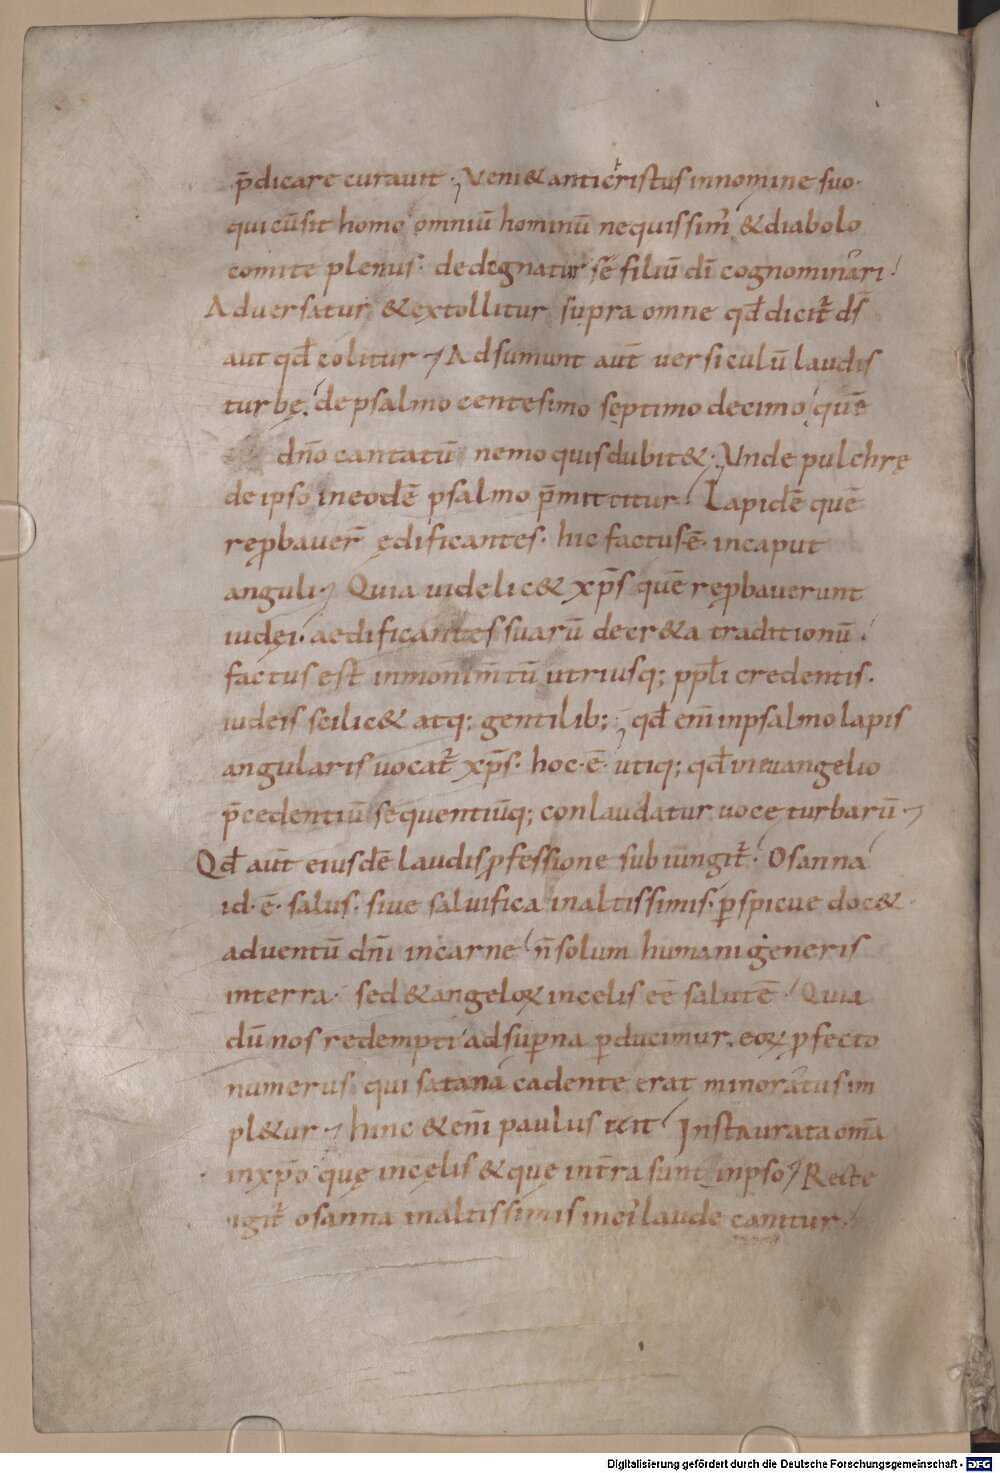 p̄dicare curauit· Veni& antichristus in nomine suo·
qui cū sit homo omniū hominū nequissim̄ & diabolo
comite plenus· dedegnatur sē filiū dī cognominari·
Aduersatur & extollitur supra omne qđ dicit̄ ds̄
aut qđ colitur· Adsumunt aut̄ uersiculū laudis
turbę· de psalmo centesimo septimo decimo quē
dn̄o cantatū nemo quis dubit&· Unde pulchrę
de ipso in eodē psalmo p̄mittitur· Lapidē quē
rep̱bauer̄ ędificantes· hic factus ē· in caput
anguli· Quia uidelic& xp̄s quē rep̱bauerunt
iudęi· aedificantes suarū decr&a traditionū·
factus est in monim̄tū utriusq; ppl̄i credentis·
iudeis scilic& atq; gentilib; qđ enī in psalmo lapis
angularis uocat̄ xp̄s· hoc· ē· utiq; qđ in euangelio
p̄cedentiū sequentiūq; conlaudatur uoce turbarū·
Qđ aut̄ eiusdē laudis ꝓfessione subiungit̄· Osanna
id· ē· salus· siue saluifica in altissimis· ꝑspicue doc&
aduentū dn̄i in carne n̄ solum humani generis
in terra· sed & angeloꝝ in celis eē salutē· Quia
dū nos redempti ad suꝑna ꝑducimur· eoꝝ ꝓfecto
numerus qui satana cadente erat minoratus im
pl&ur· hinc & enī paulus Instaurata om̄a
in xp̄o quę in cęlis & que in t̄ra sunt in ipso· Recte
igit̄ osanna in altissimis in laude canitur·
Digitalisierung gefördert durch die Deutsche Forschungsgemeinschaft - DFG